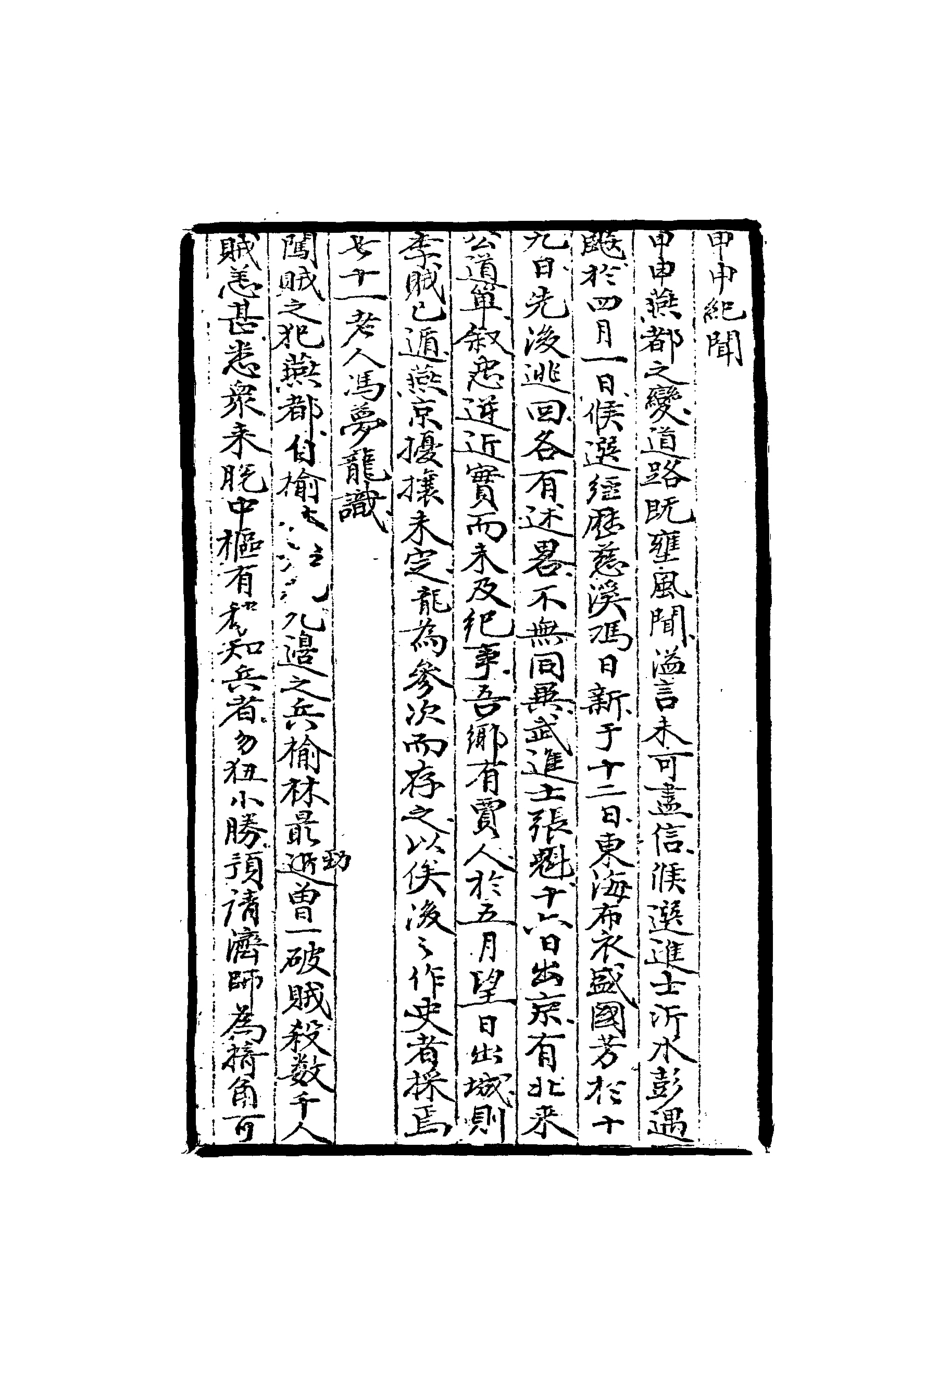 甲申紀聞
甲申燕都之變道路既壅風聞溢言未可盡信候選進士沂水彭遇
颽於四月一日候選經歷慈溪馮日新于十二日東海布衣盛國芳於十
九日先後逃回各有述畧不無同異武進士張魁十六日出京有北來
公道單叙忠逆近實而未及紀事吾鄉有賈人於五月望日出城則
李賊已遁燕京擾攘未定龍為參次而存之以俟後之作史者採焉
七十一老人馮夢龍識
闖賊之犯燕都自榆 九邊之兵榆林最近勁曾一破賊殺数千人
賊恙甚悉衆來脫中樞有 知兵者勿狃小勝預請濟師為犄角可